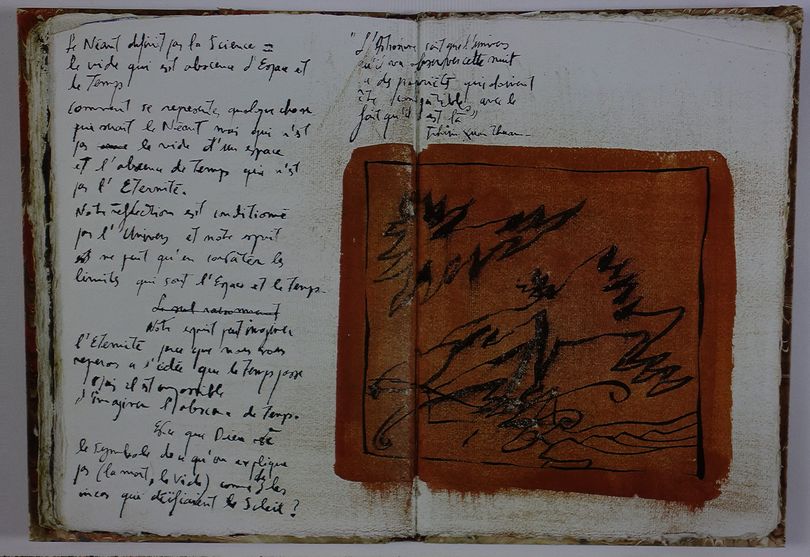 Le Néant définit par la Science =
le vide qui est absence d'Espace et
de Temps
comment se représenter quelque chose
qui serait le Néant mais qui n'est
pas le vide d'un espace
et l'absence de temps qui n'est
pas l'Eternité.
Notre réflection est conditionné
par l'Univers et notre esprit
ne peut qu'en constater les
limites qui sont l'Espace et le temps.
Notre esprit peut imaginer
l'Eternité parce que nous nous
reperons a l'idée que le temps passe
mais il est impossible
d'imaginer l'absence de temps.
Est ce que Dieu est
le Symbole de ce qu'on explique
pas (la mort, le vide) comme les
incas que déifiaient le Soleil ?
"L'Astronome sait que l'Univers
qu'il va observer cette nuit
a des propriétés qui doivent
être compatibles avec le
fait qu'il est là"
Trinh Xuan Thuan